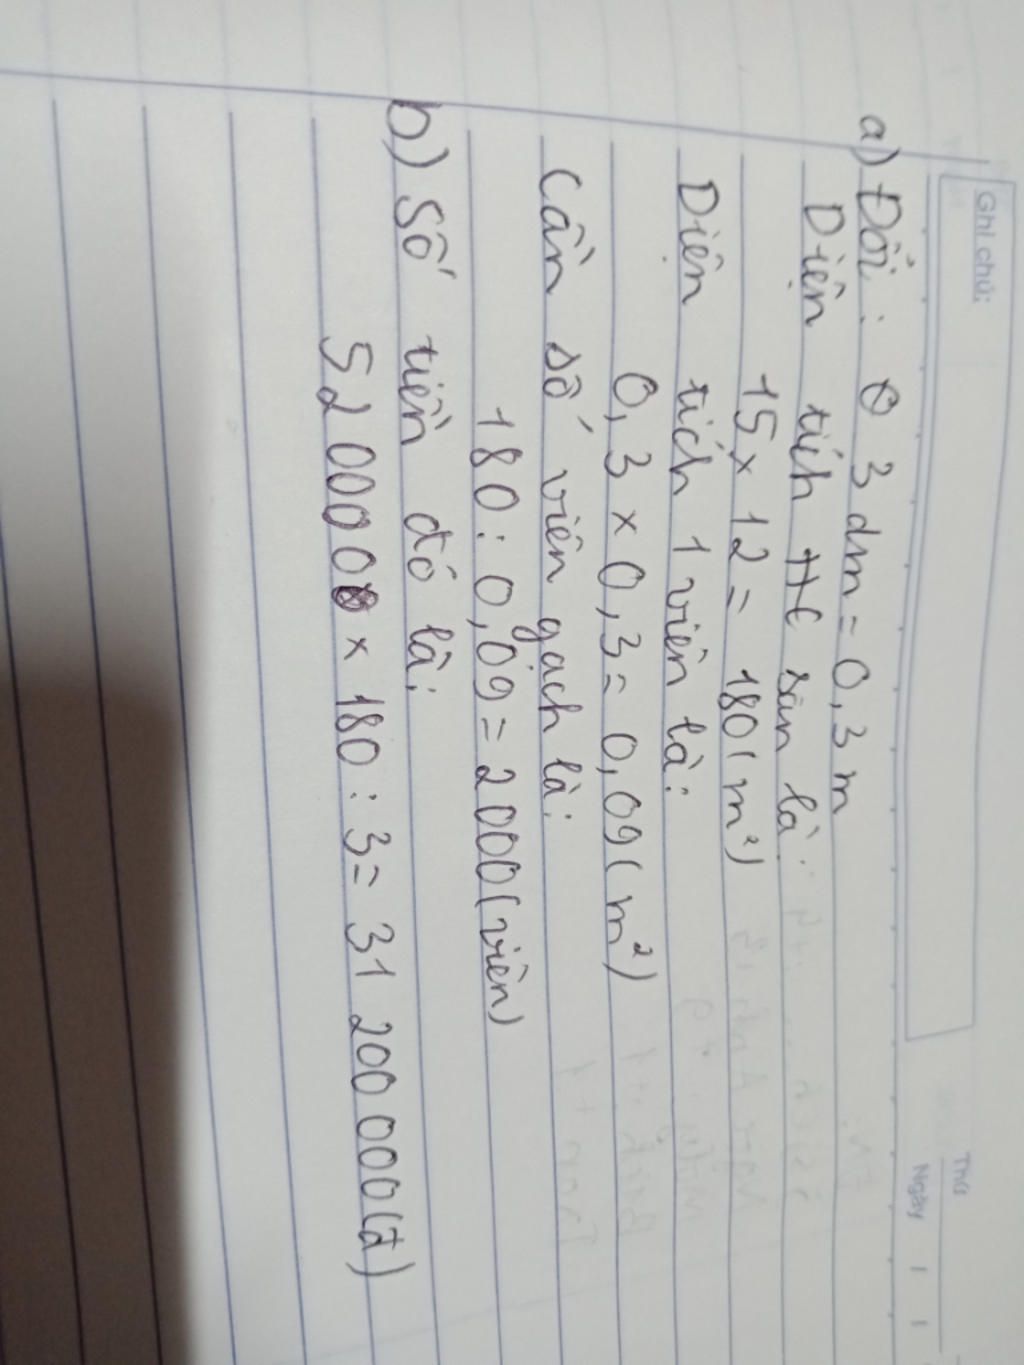 Ghi chú:
Thứ
Ngày / /
a) Đổi: 3 dm = 0,3 m
Diện tích sân là:
15 x 12 = 180 (m²)
Diện tích 1 viên là:
0,3 x 0,3 = 0,09 (m²)
Cần số viên gạch là:
180 : 0,09 = 2000 (viên)
b) Số tiền đó là:
520000 x 180 : 3 = 31 200 000 (đ)